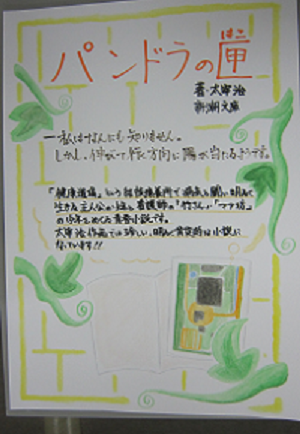 はこ
パンドラの匣
著・太宰治
新潮文庫
―私はなんにも知りません。
しかし、伸びて行く方向に陽が当たるようです。
「健康道場」という結核療養所で病気と闘い明るく
生きる主人公が挑む、看護師の「竹さん」「マア坊」
の少年をめぐる青春小説です。
太宰治作品では珍しい、明るく肯定的な小説に
なっています!!